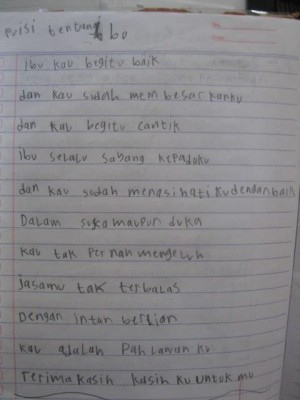 puisi tentang Ibu
Ibu kau begitu baik
dan kau sudah membesarkanku
dan kau begitu cantik
Ibu selalu sabang kepadaku
dan kau sudah menasihatiku dendan baik
Dalam suka maupun duka
kau tak pernah mengeluh
jasamu tak terbalas
Dengan intan berlian
kau adalah pahlawan ku
Terima kasih kasih ku untuk mu